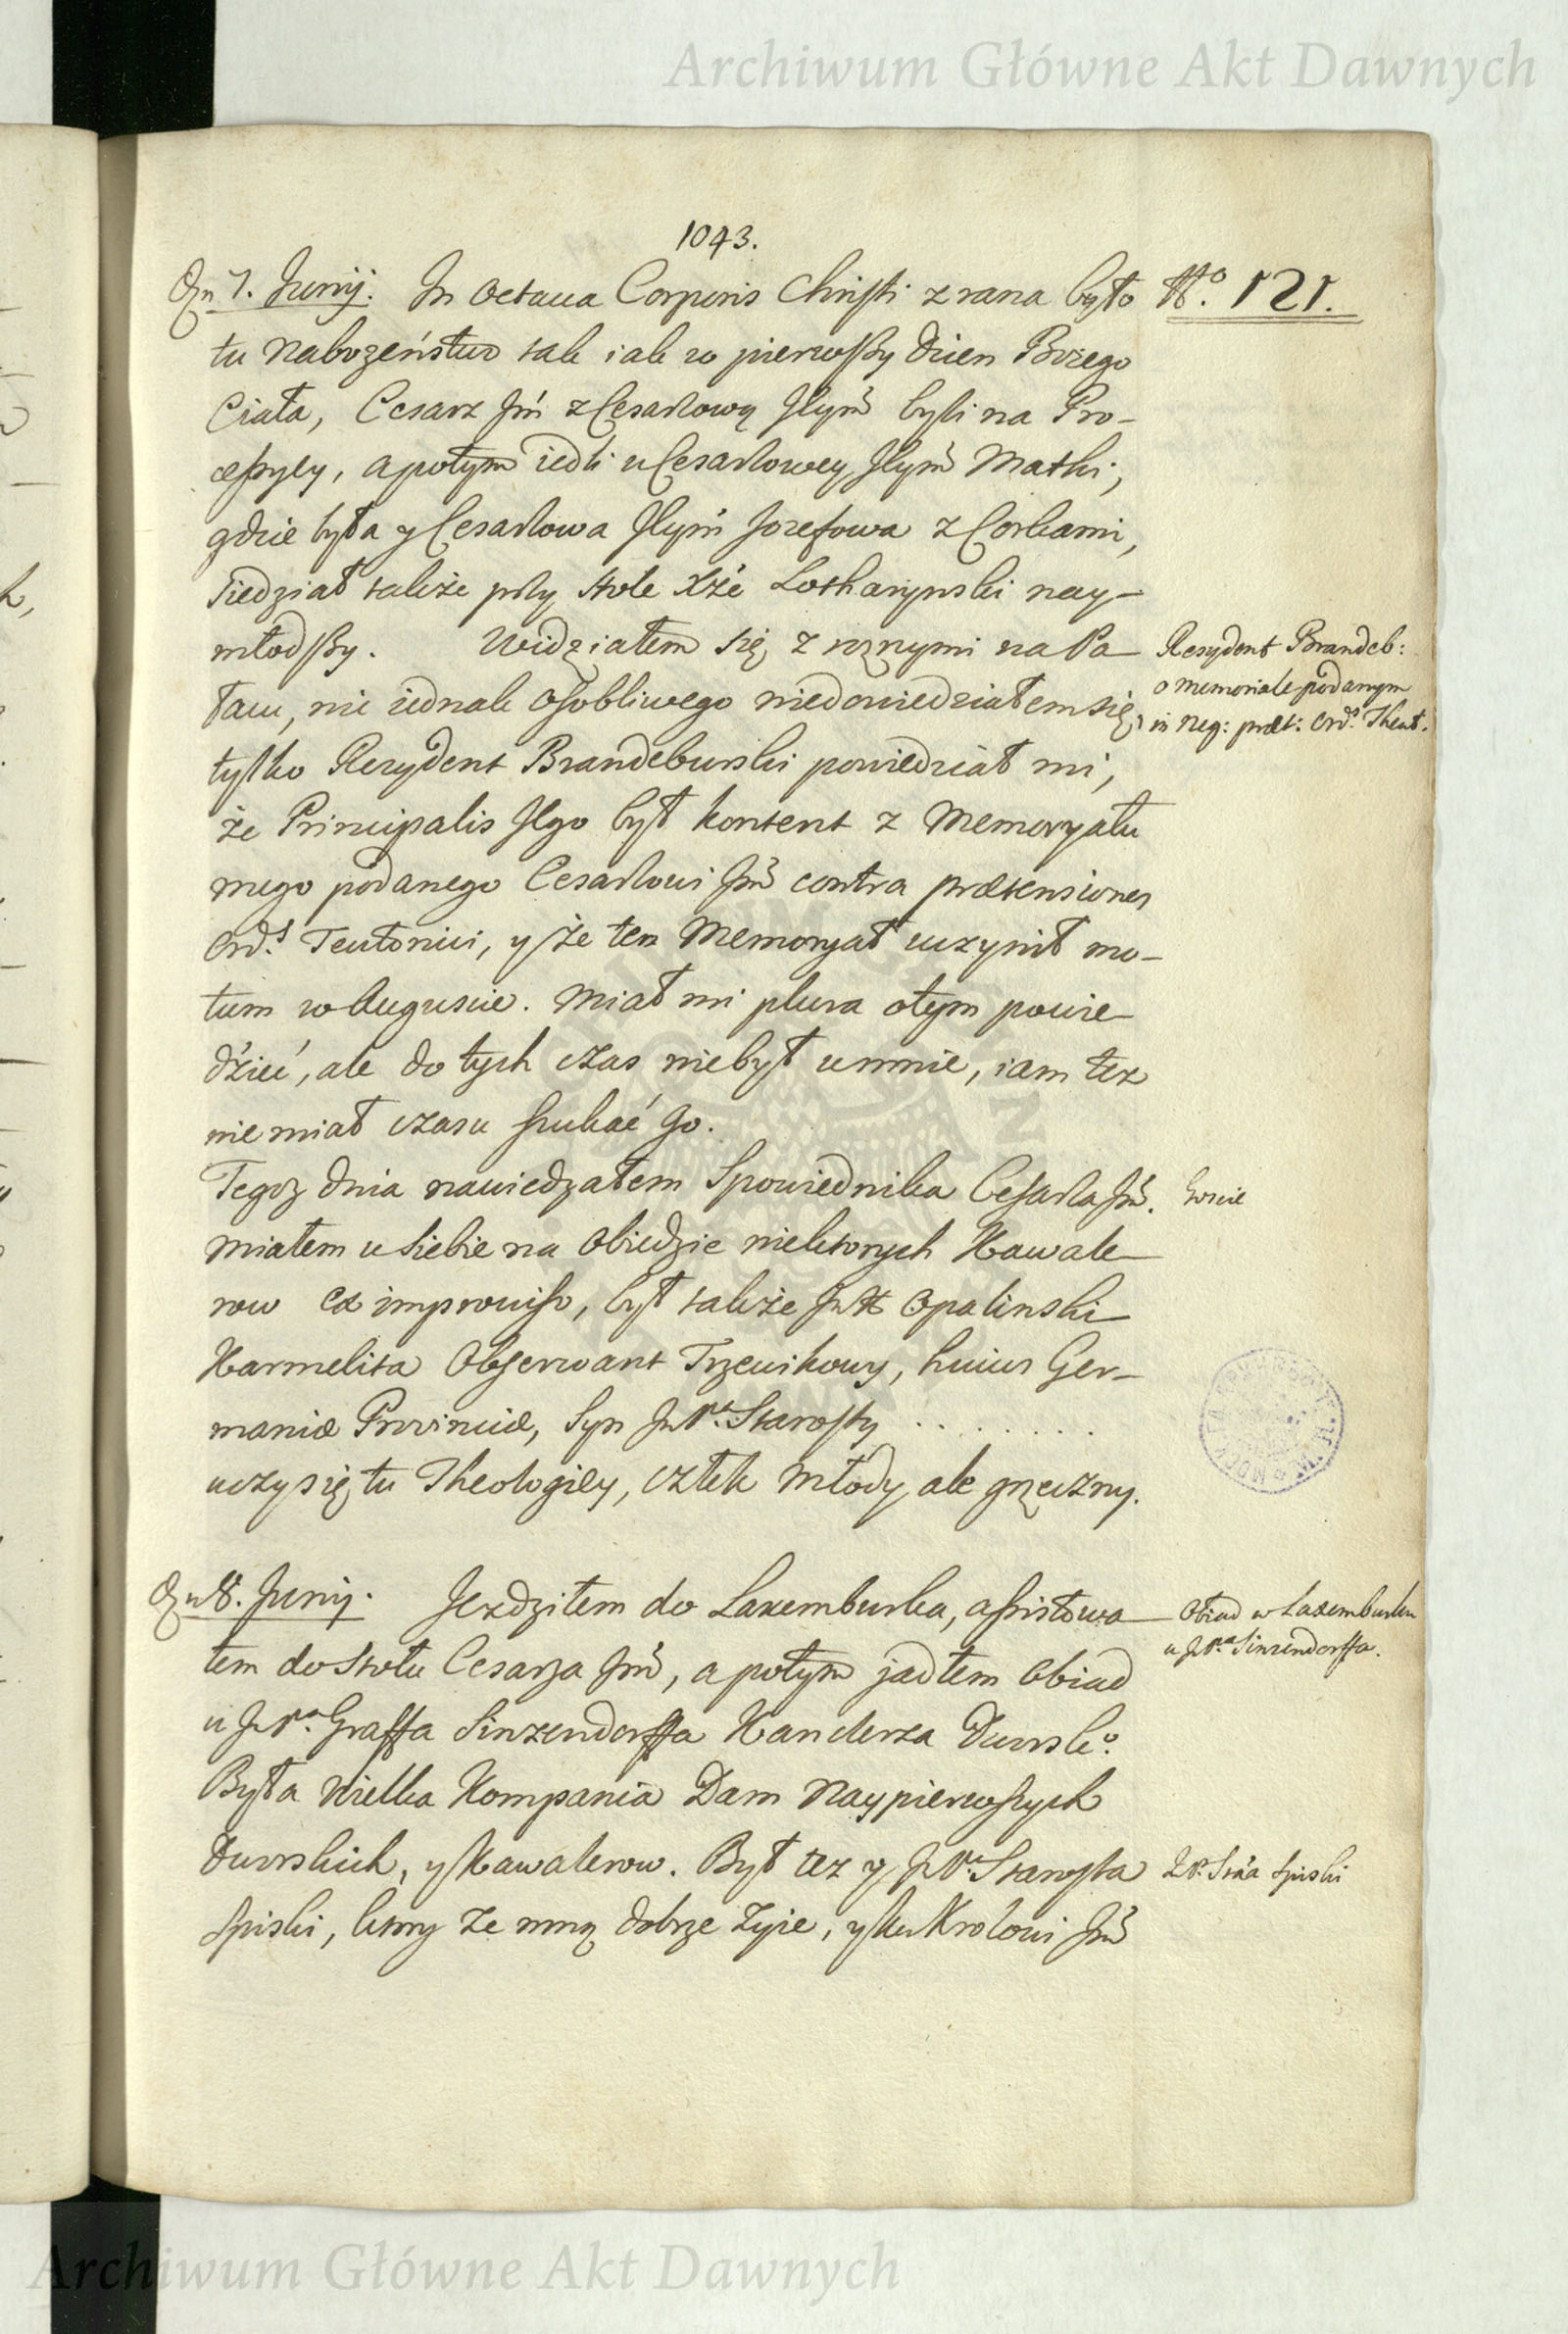 Archiwum Główne Akt Dawnych
1043.
Dn 7. Junij. In Octaua Corporis Christi z rana było
No. 121.
tu Nabozeństwo tak iak w pierwszy dzien Bozego
Ciała, Cesarz Jmć z Cesarzową Jeymć byli na Pro-
cessyey, a potym iedli u Cesarzowey Jeymć Matki,
gdzie była y Cesarzowa Jeymć Jozefowa z Corkami,
siedział takźe przy stole Xżé Lotharynski nay-
młodszy. Widziałem się z roznymi na Pa-
Rezydent Brandeb:
o memoriale podanym
in neg: præt: Ord.s Theut.
łacu, nic iednak osobliwego niedowiedziałem się,
tylko Rezydent Brandeburski powiedział mi,
że Principalis Jego był kontent z Memoryału
mego podanego Cesarzowi Jmć contra prætensiones
Ord.s Teutonici, y że ten Memoryał uczynił mo-
tum w Auguscie. Miał mi plura otym powie-
dźieć, ale do tych czas niebył u mnie, iam tez
nie miał czasu szukać go.
Tegoz dnia nawiedzałem Spowiednika Cesarza Jmć.
Goscie
miałem u siebie na obiedzie niektorych Kawale-
row ex improuiso, był takźe JnX Opalinski
Karmelita Obserwant Trzewikowy, huius Ger-
maniæ Prouinciæ, Syn JnPa Starosty . . . . . . .
uczy się tu Theologiey, człek młody ale grzeczny.
Dn 8. Junij. Jezdziłem do Laxemburka, assistowa-
Obiad w Laxemburku
u JnPa Sinzendorffa.
łem do stołu Cesarza Jmć, a potym jadłem obiad
u JnPa Graffa Sinzendorffa Kanclerza Dworsko.
Była wielka Kompania Dam Naypierwszych
Dworskich, y Kawalerow. Był tez y JnPn Starosta
JP. Stta Spiski
Spiski, ktory ze mną dobrze zyie, y ku Krolowi Jmć
Archiwum Główne Akt Dawnych